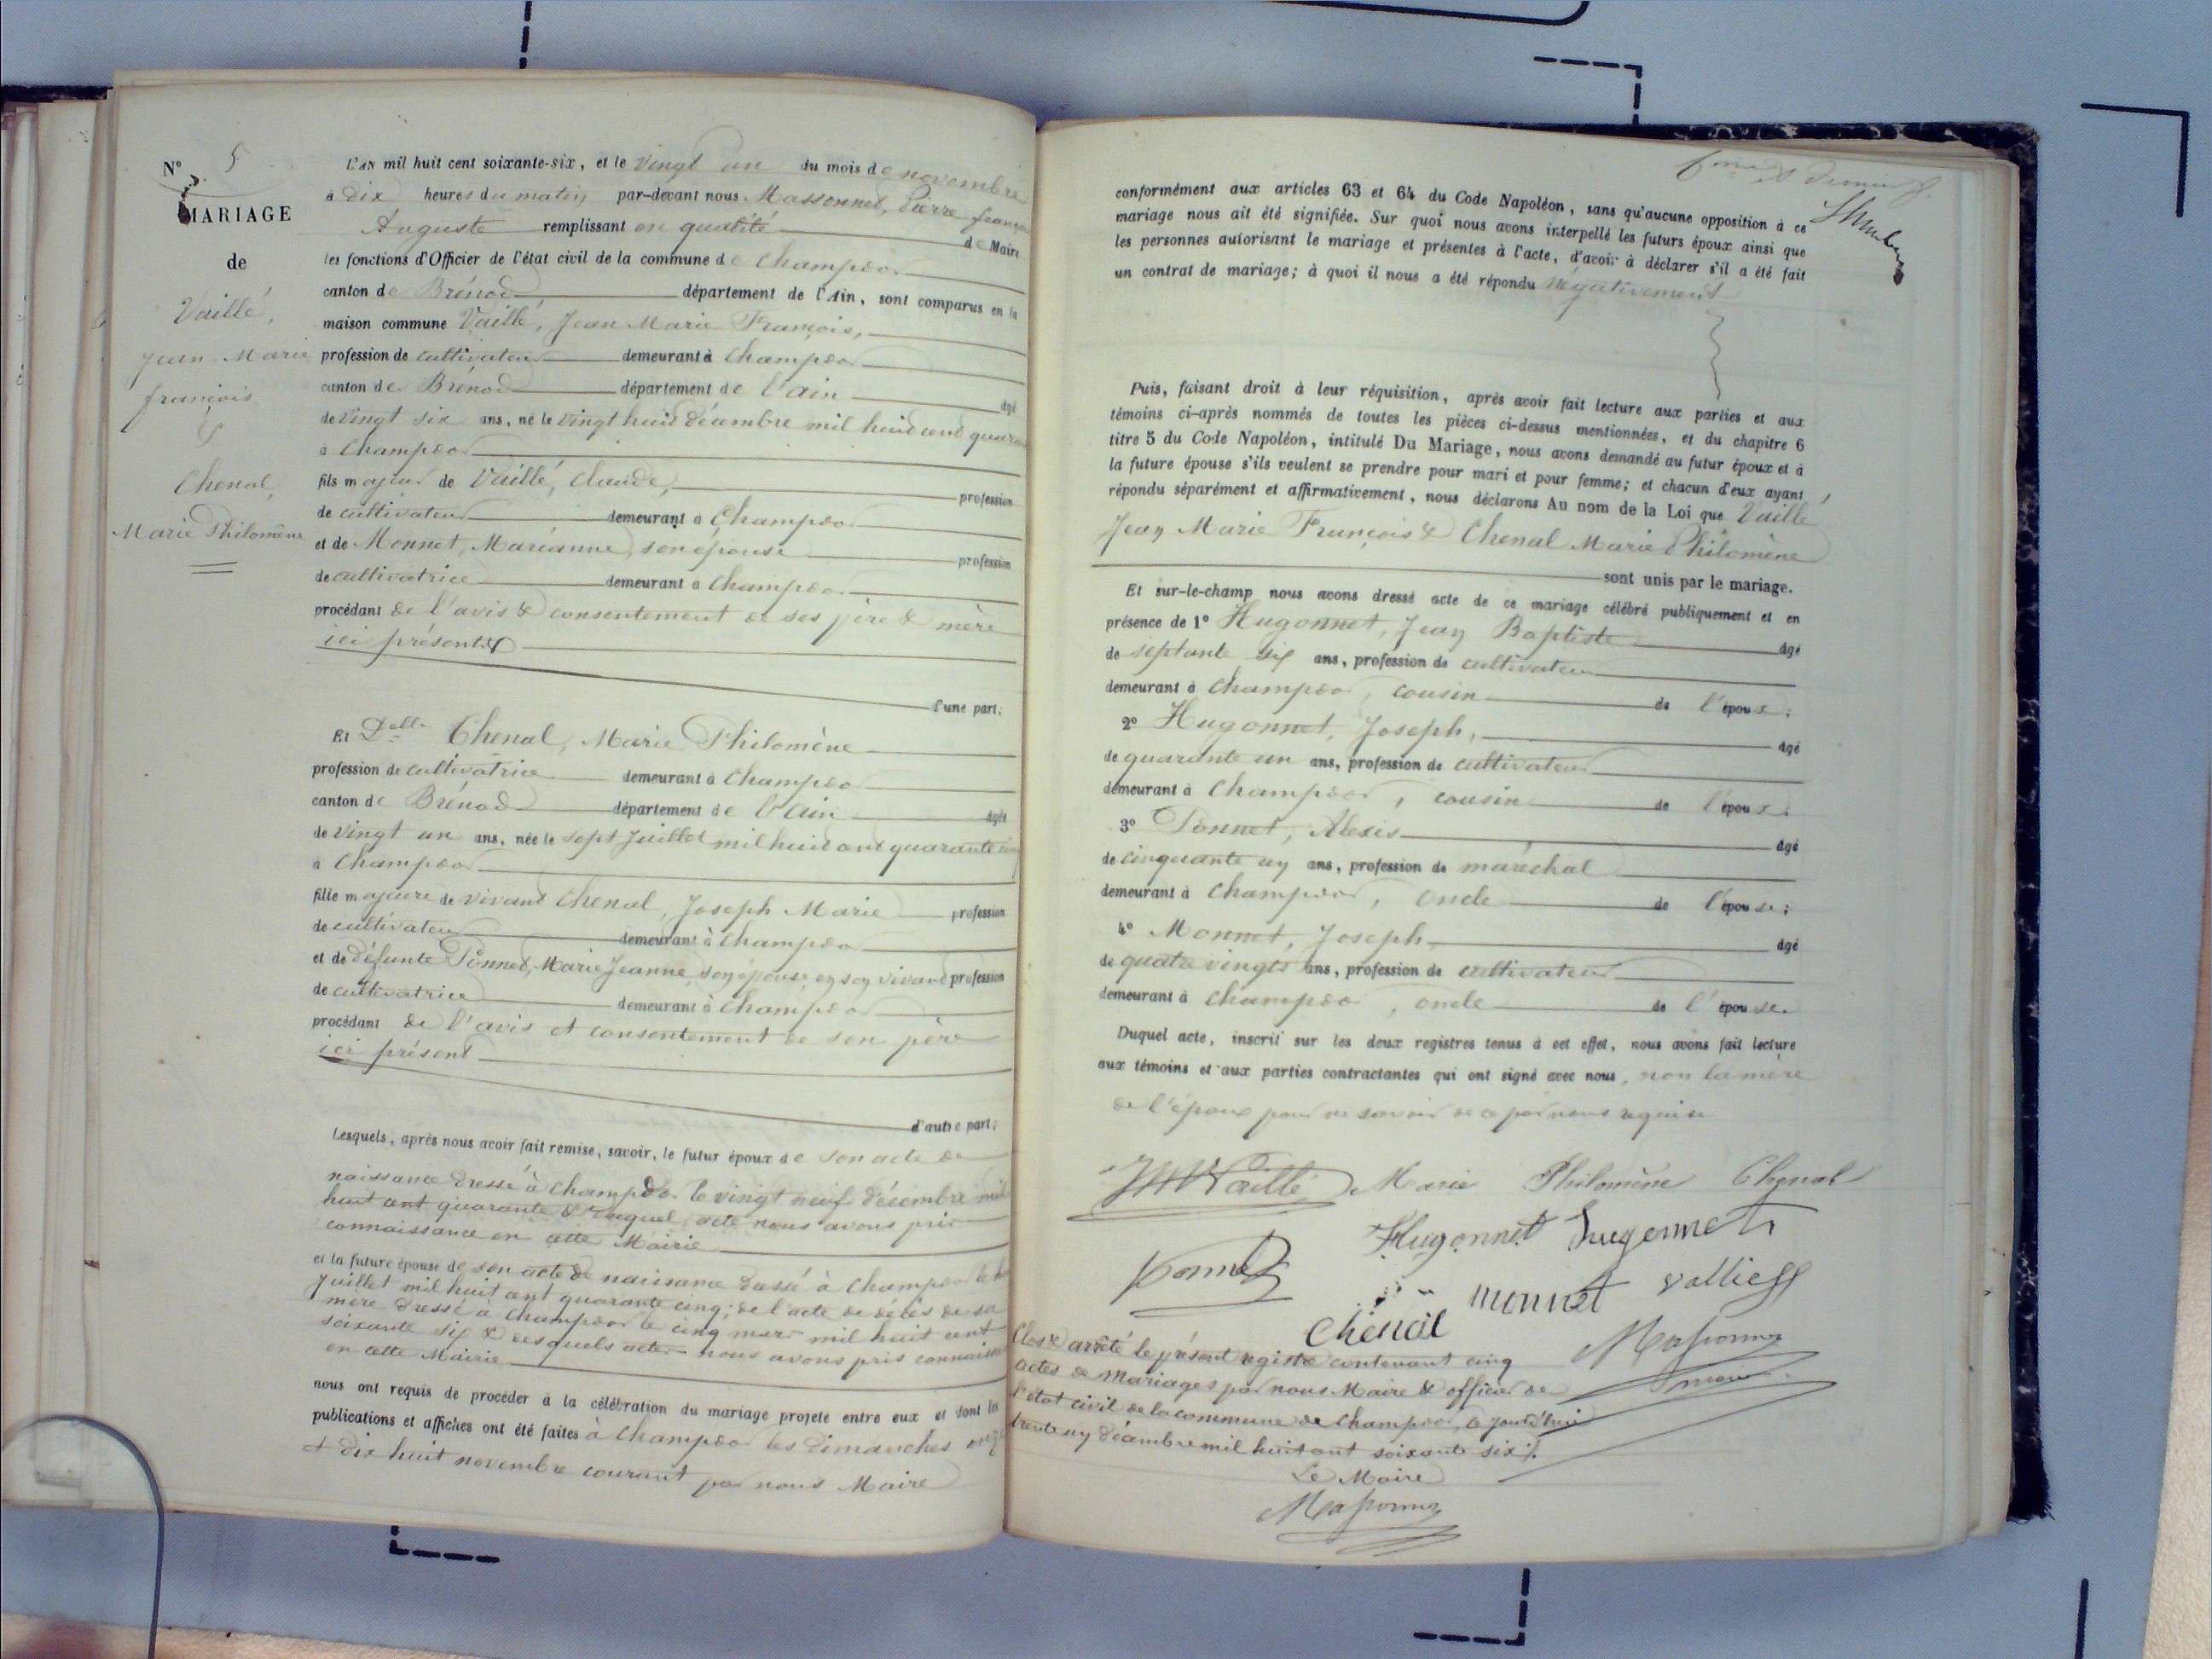 N° 5
MARIAGE
de
Vaillé,
Jean Marie
françois
&
Chenal,
Marie Philomène
L'AN mil huit cent soixante-six, et le vingt un du mois de novembre
à dix heures du matin par-devant nous Massonnet, Pierre françois
Auguste remplissant en qualité de Maire
les fonctions d'Officier de l'état civil de la commune de Champdor
canton de Brénod département de l'Ain, sont comparus en la
maison commune Vaillé, Jean Marie François,
profession de cultivateur demeurant à Champdor
canton de Brénod département de l'ain âgé
de vingt six ans, né le vingt huit décembre mil huit cent quarante
à Champdor
fils majeur de Vaillé, Claude, profession
de cultivateur demeurant à Champdor
et de Monnet, Marianne, son épouse profession
de cultivatrice demeurant à Champdor
procédant de l'avis & consentement de ses père & mère
ici présents
d'une part;
Et Delle Chenal, Marie Philomène
profession de cultivatrice demeurant à Champdor
canton de Brénod département de l'ain âgée
de vingt un ans, née le sept Juillet mil huit cent quarante cinq
à Champdor
fille majeure de vivant Chenal, Joseph Marie profession
de cultivateur demeurant à Champdor
et de défunte Ponnet, Marie Jeanne, son épouse, en son vivant profession
de cultivatrice demeurant à Champdor
procédant de l'avis et consentement de son père
ici présent
d'autre part;
Lesquels, après nous avoir fait remise, savoir, le futur époux de son acte de
naissance dressé à Champdor le vingt neuf décembre mil
huit cent quarante & duquel acte nous avons pris
connaissance en cette Mairie
et la future épouse de son acte de naissance dressé à Champdor le
Juillet mil huit cent quarante cinq; de l'acte de décès de sa
mère dressé à Champdor le cinq mars mil huit cent
soixante six & desquels actes nous avons pris connaissance
en cette Mairie
nous ont requis de procéder à la célébration du mariage projeté entre eux et dont les
publications et affiches ont été faites à Champdor les dimanches onze
et dix huit novembre courant par nous Maire
conformément aux articles 63 et 64 du Code Napoléon, sans qu'aucune opposition à ce
mariage nous ait été signifiée. Sur quoi nous avons interpellé les futurs époux ainsi que
les personnes autorisant le mariage et présentes à l'acte, d'avoir à déclarer s'il a été fait
un contrat de mariage; à quoi il nous a été répondu négativement
Puis, faisant droit à leur réquisition, après avoir fait lecture aux parties et aux
témoins ci-après nommés de toutes les pièces ci-dessus mentionnées, et du chapitre 6
titre 5 du Code Napoléon, intitulé Du Mariage, nous avons demandé au futur époux et à
la future épouse s'ils veulent se prendre pour mari et pour femme; et chacun d'eux ayant
répondu séparément et affirmativement, nous déclarons Au nom de la Loi que Vaillé,
Jean Marie François & Chenal Marie Philomène
sont unis par le mariage.
Et sur-le-champ nous avons dressé acte de ce mariage célébré publiquement et en
présence de 1° Hugonnet, Jean Baptiste âgé
de septante six ans, profession de cultivateur
demeurant à Champdor, cousin de l'époux;
2° Hugonnet, Joseph, âgé
de quarante un ans, profession de cultivateur
demeurant à Champdor, cousin de l'époux.
3° Ponnet, Alexis âgé
de cinquante un ans, profession de maréchal
demeurant à Champdor, oncle de l'épouse;
4° Monnet, Joseph âgé
de quatre vingts ans, profession de cultivateur
demeurant à Champdor, oncle de l'épouse.
Duquel acte, inscrit sur les deux registres tenus à cet effet, nous avons fait lecture
aux témoins et aux parties contractantes qui ont signé avec nous, non la mère
de l'époux pour ne savoir de ce par nous requise
JM Vaillé Marie Philomène Chenal
Hugonnet hugonnet
Ponnet
monnet
Chenal
Clos & arrêté le présent registre contenant cinq
actes de Mariages par nous Maire & officier de
l'état civil de la commune de Champdor, ce jourd'hui
trente un décembre mil huit cent soixante six.
Le Maire